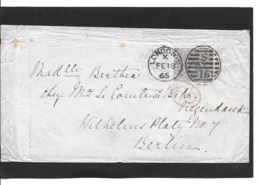 LONDON
X
FE 18
65
S
16
Madlle Berthe
chez Mme Le Comte
Wilhelms Platz No 7
Berlin